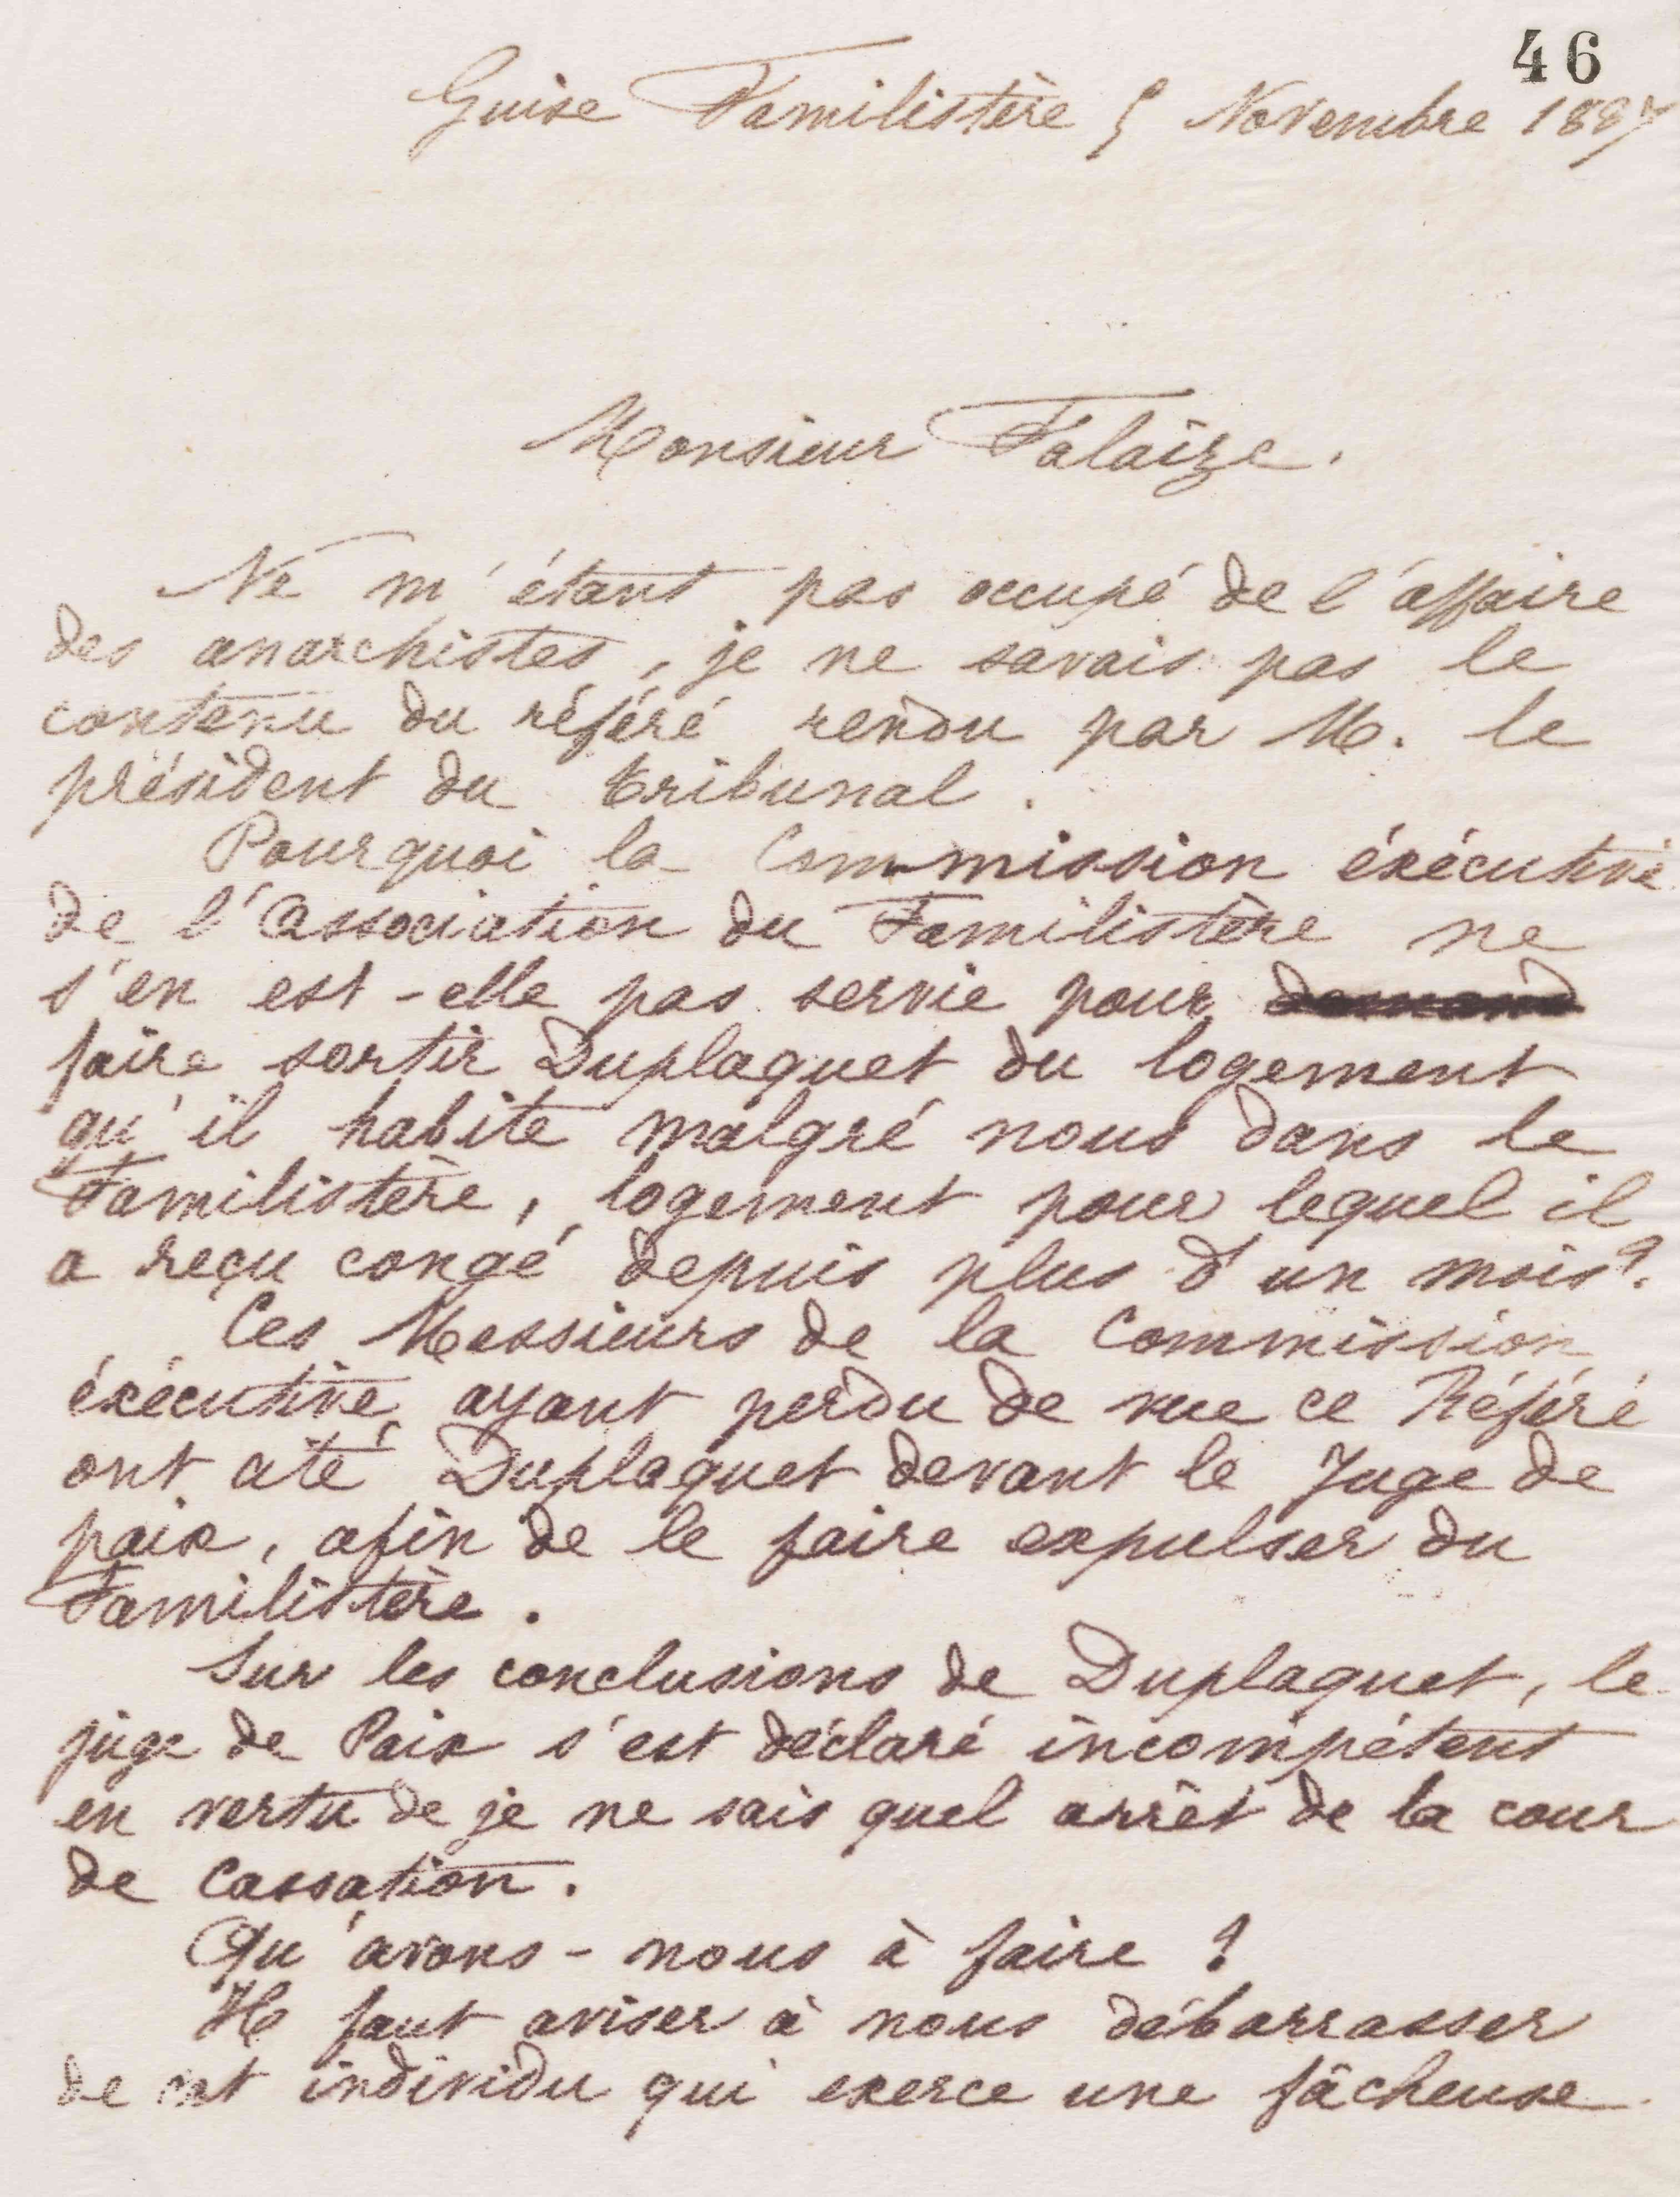 46
Guise Familistère 5 Novembre 1887
Monsieur Falaize.
Ne m'étant pas occupé de l'affaire
des anarchistes, je ne savais pas le
contenu du référé rendu par M. le
président du tribunal.
Pourquoi la Commission éxécutive
de l'association du Familistère ne
s'en est-elle pas servie pour demand
faire sortir Duplaquet du logement
qu'il habite malgré nous dans le
Familistère, logement pour lequel il
a reçu congé depuis plus d'un mois?
Ces Messieurs de la Commission
éxécutive ayant perdu de vue ce Référé
ont cité Duplaquet devant le Juge de
paix, afin de le faire expulser du
Familistère.
Sur les conclusions de Duplaquet, le
juge de Paix s'est déclaré incompétent
en vertu de je ne sais quel arrêt de la cour
de Cassation.
Qu'avons-nous à faire ?
Il faut aviser à nous débarrasser
de cet individu qui exerce une fâcheuse